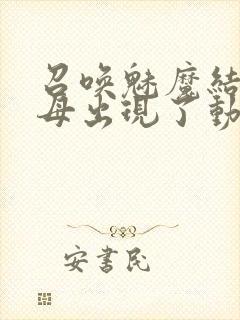 召喚魅魔結
母出現了動
安書民